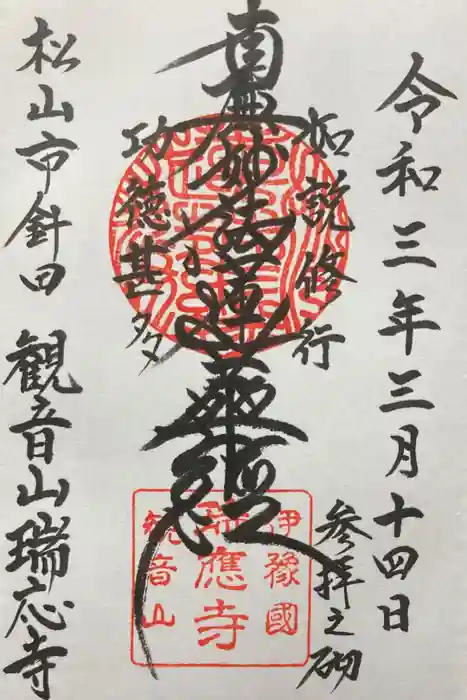 令和三年三月十四日
参拝之砌
如説修行
南無妙法蓮華経
功徳甚多
松山市針田
観音山瑞応寺
伊豫國
瑞應寺
観音山